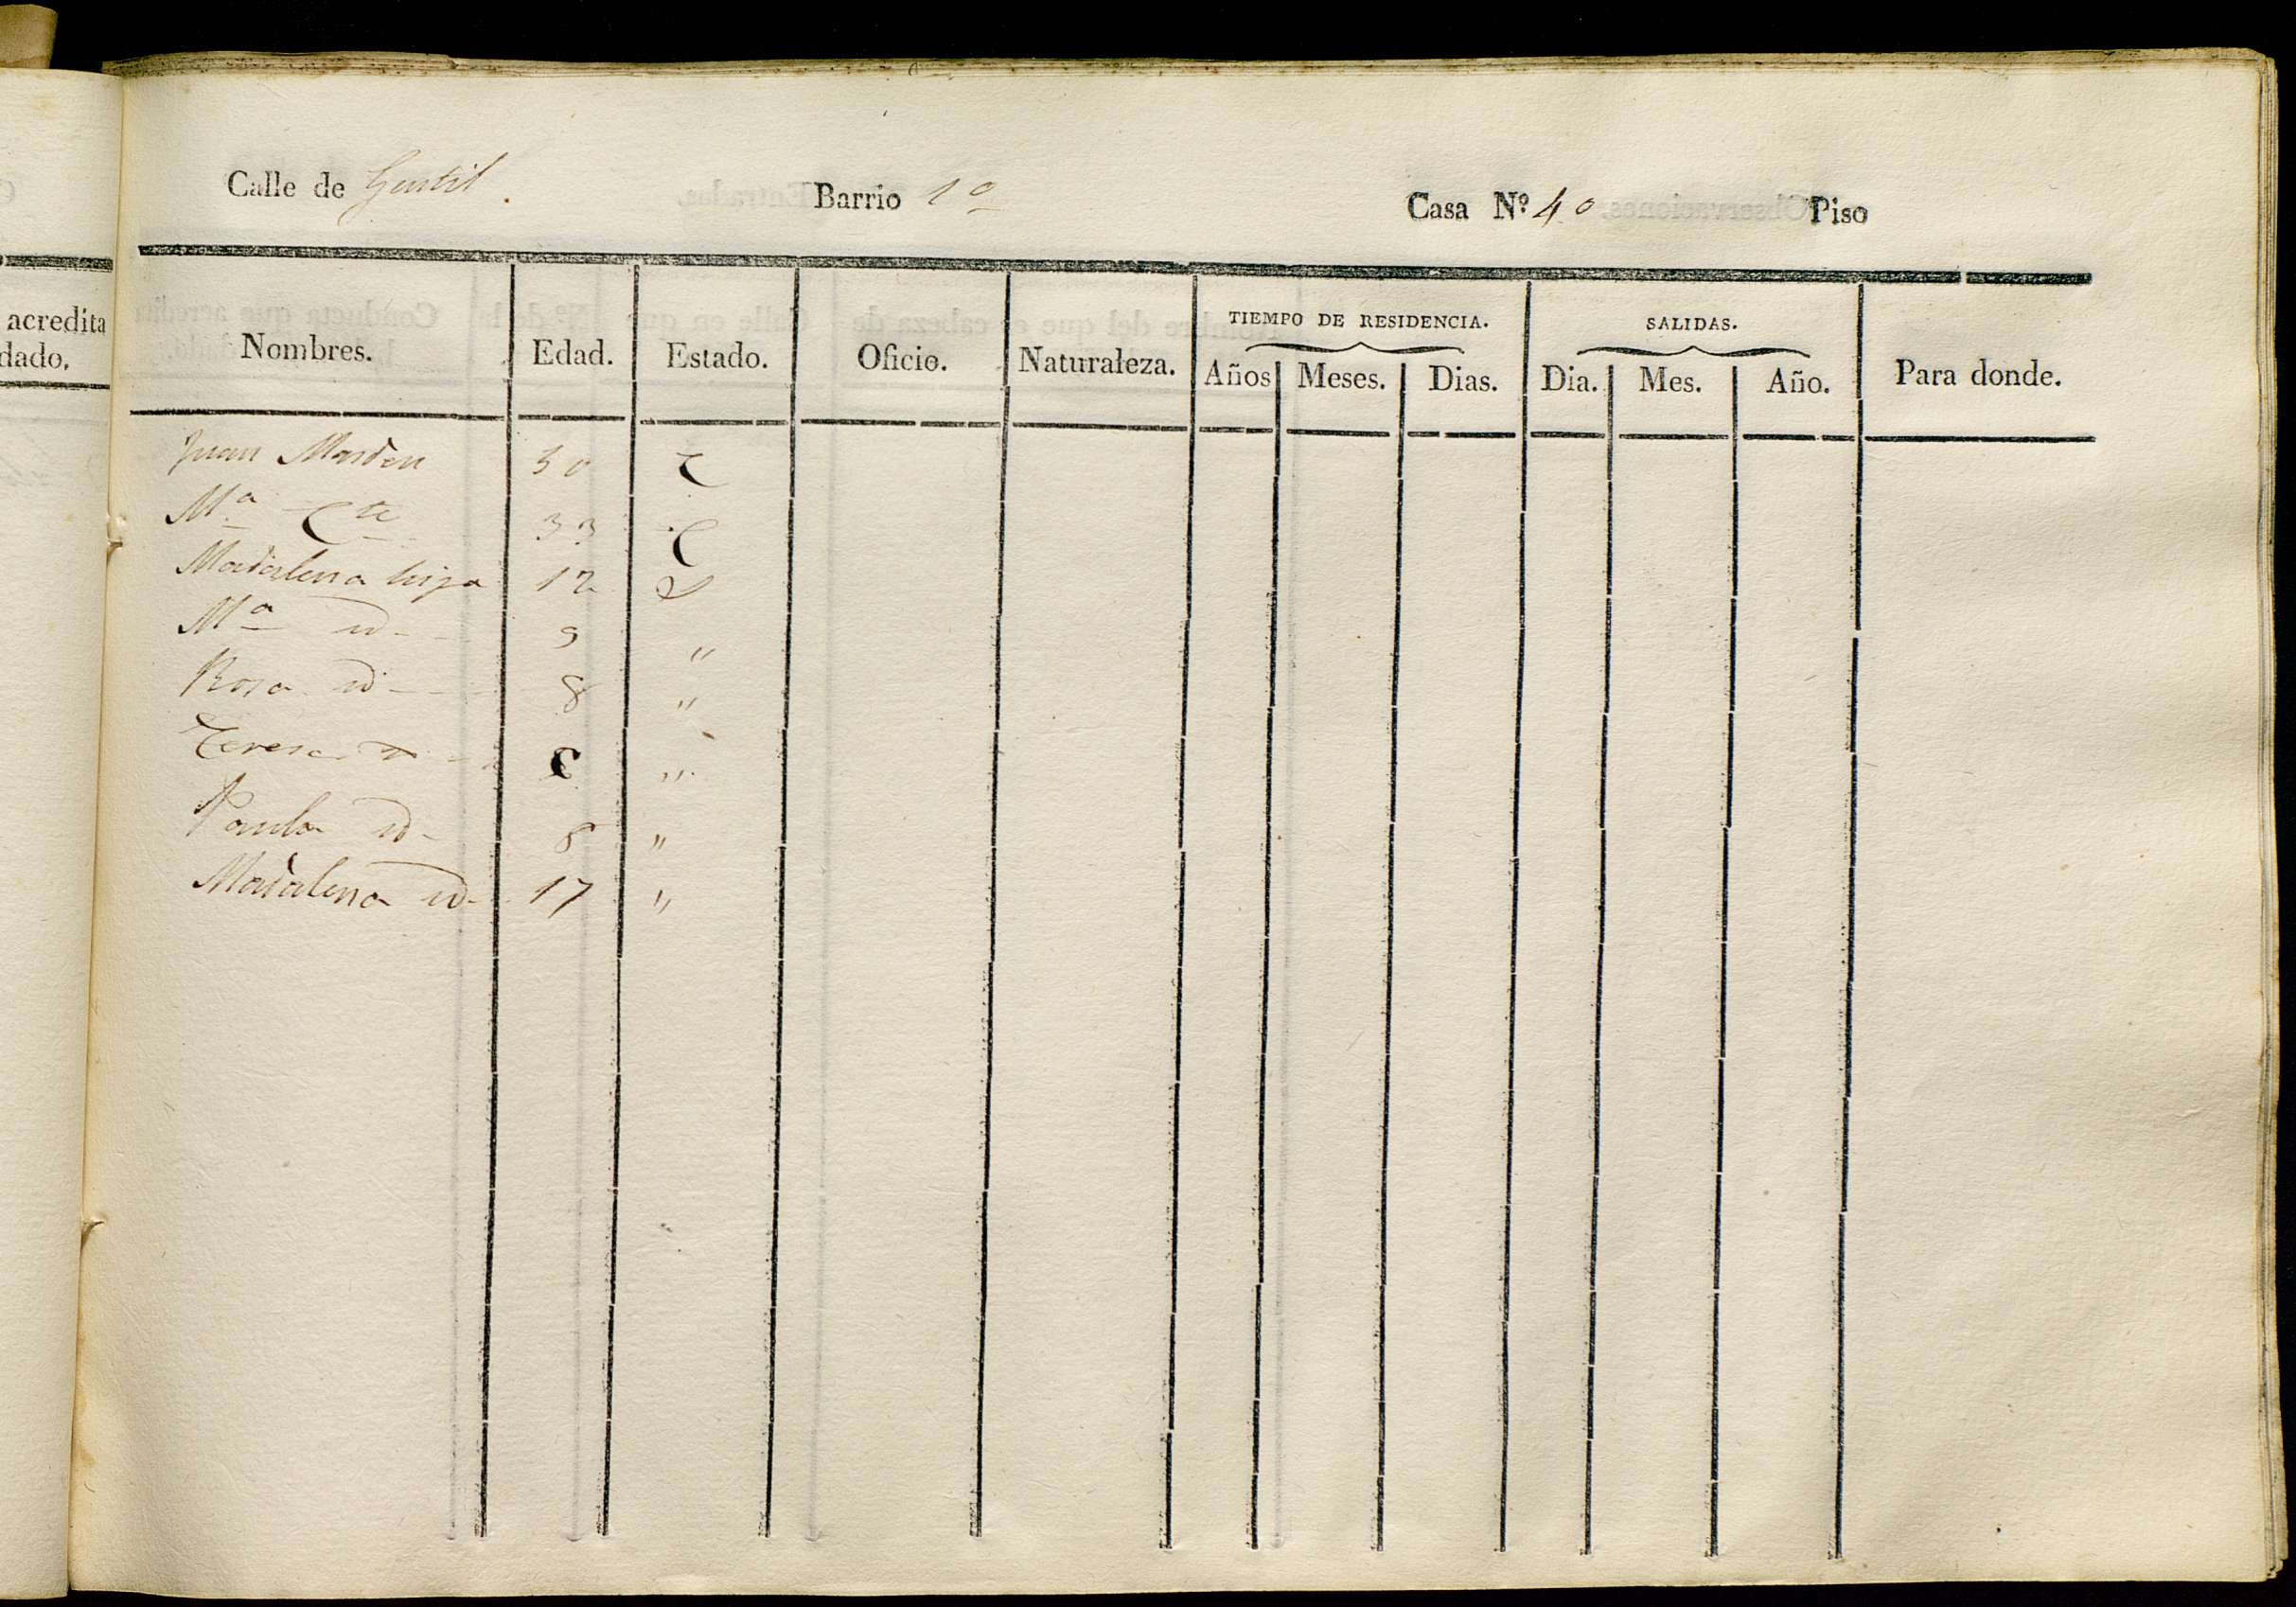 Calle de Gentil Barrio 1º Casa Nº 40 Piso
acredita
dado.
TIEMPO DE RESIDENCIA. SALIDAS.
Nombres. Edad. Estado. Oficio. Naturaleza. Años Meses. Dias. Dia. Mes. Año. Para donde.
Juan 30 C
Mª 33 C
Madalena hija 12 S
Mª id 9 "
Rosa id 8 "
Teresa "
Paula id 8 "
Madalena id 17 "